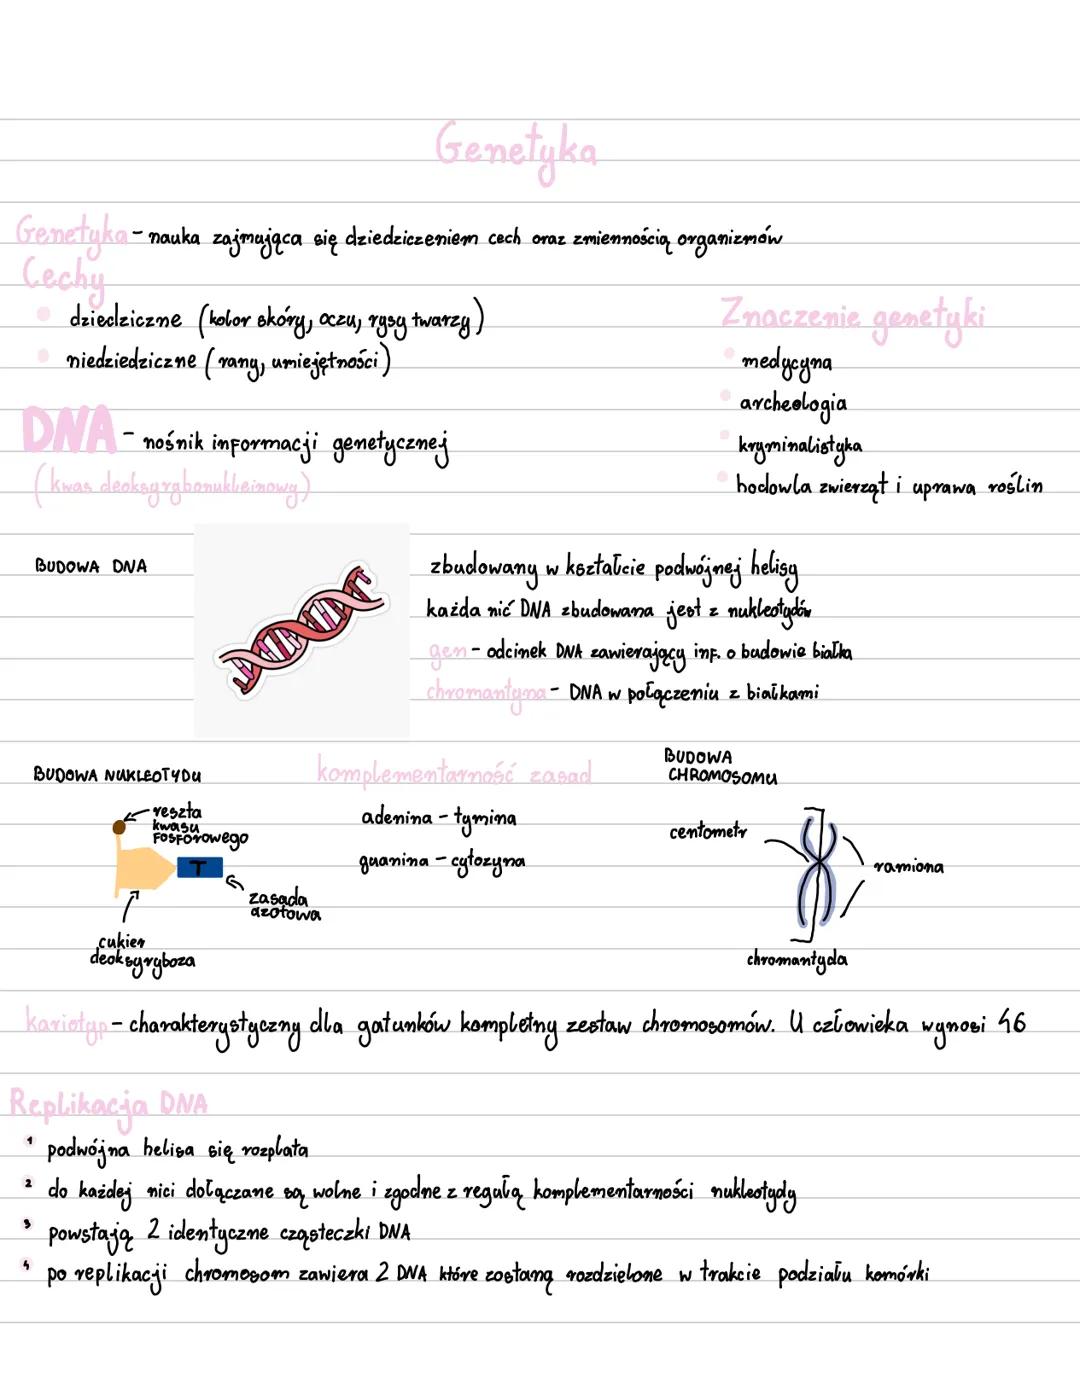 Genetyka
Genetyka - nauka zajmująca się dziedziczeniem cech oraz zmiennością organizmów
Cechy
dziedziczne (kolor skóry, oczu, rysy twarzy)
niedziedziczne (rany, umiejętności)
Znaczenie genetyki
medycyna
archeologia
kryminalistyka
hodowla zwierząt i uprawa roślin
DNA - nośnik informacji genetycznej
(kwas deoksyrybonukleinowy)
BUDOWA DNA
zbudowany w kształcie podwójnej helisy
każda nić DNA zbudowana jest z nukleotydów
gen - odcinek DNA zawierający inf. o budowie białka
chromantyna - DNA w połączeniu z białkami
BUDOWA NUKLEOTYDU
reszta
kwasu
fosforowego
T
zasada
azotowa
cukier
deoksyryboza
komplementarność zasad
adenina - tymina
guanina - cytozyna
BUDOWA
CHROMOSOMU
centometr
ramiona
chromantyda
kariotyp - charakterystyczny dla gatunków kompletny zestaw chromosomów. U człowieka wynosi 46
Replikacja DNA
1 podwójna helisa się rozplata
2 do każdej nici dołączane są wolne i zgodne z regułą komplementarności nukleotydy
3 powstają 2 identyczne cząsteczki DNA
4 po replikacji chromosom zawiera 2 DNA które zostaną rozdzielone w trakcie podziału komórki